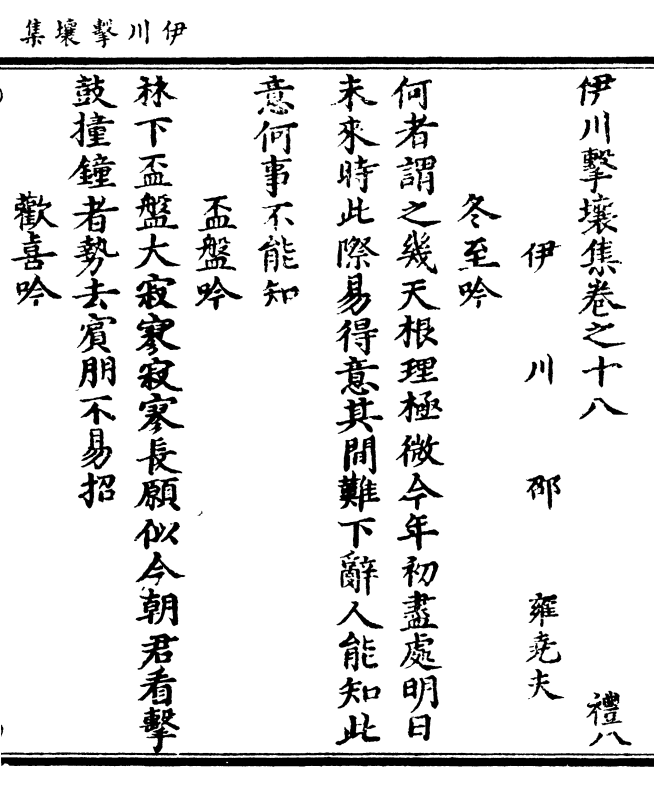 伊川擊壤集
伊川擊壤集卷之十八 禮八
伊川邵雍堯夫
冬至吟
何者謂之幾天根理極微今年初盡處明日
未來時此際易得意其間難下辭人能知此
意何事不能知
盃盤吟
林下盃盤大寂寥寂寥長願似今朝君看擊
鼓撞鐘者勢去賓朋不易招
歡喜吟